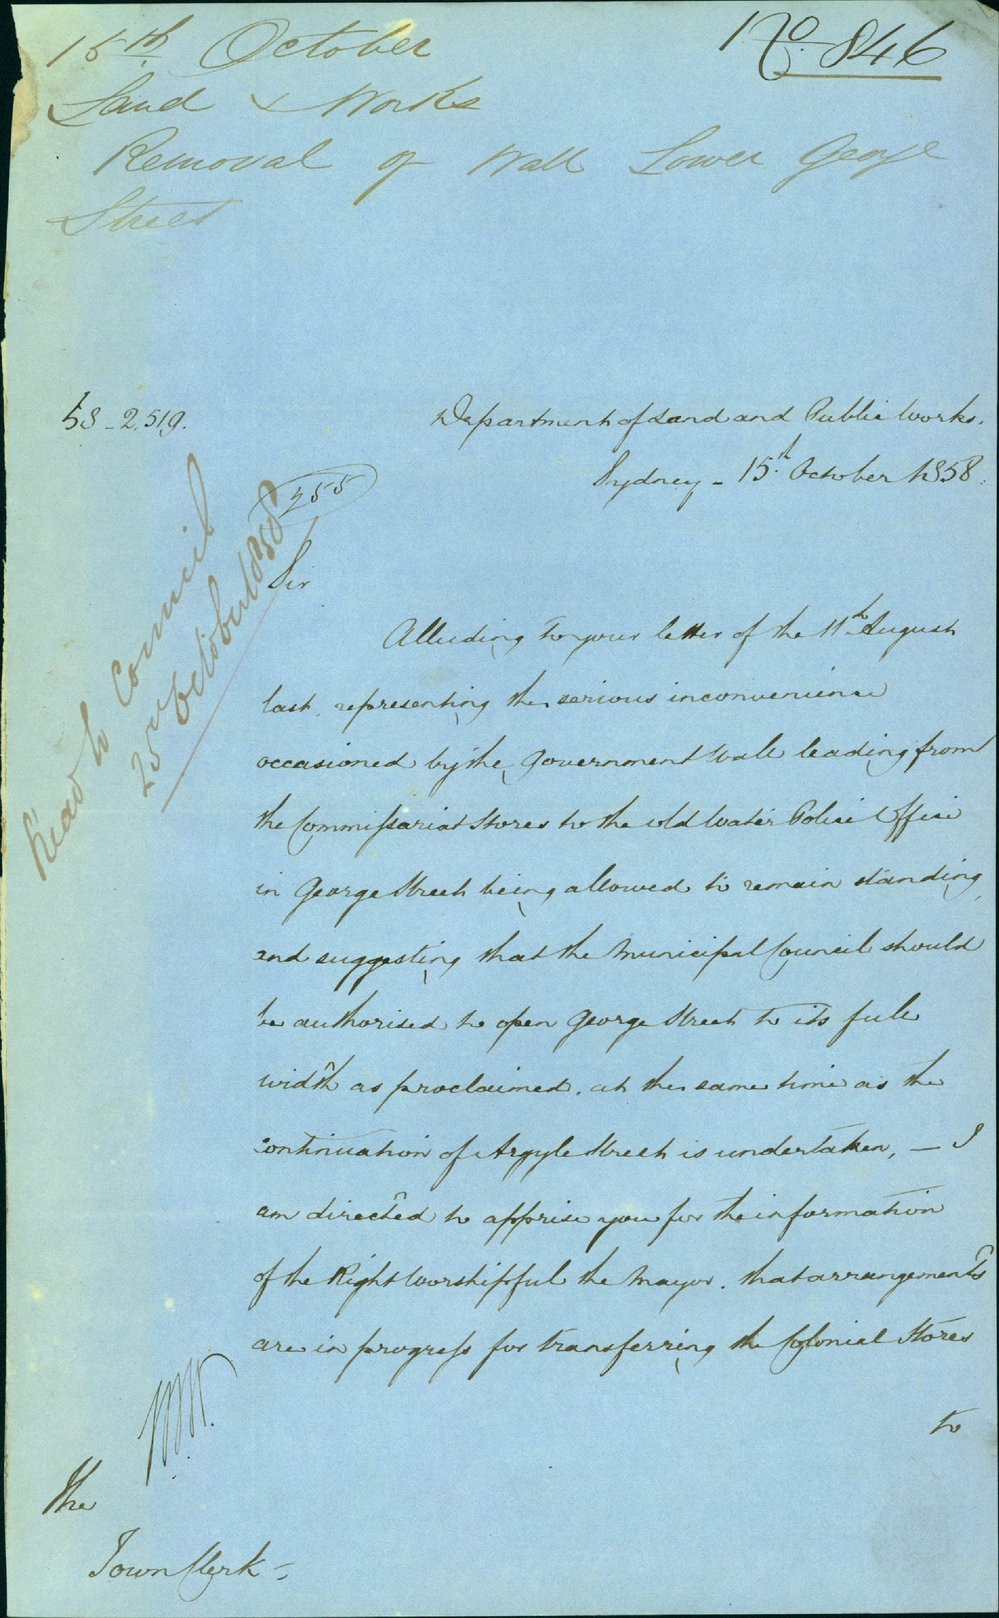 15th October
No. 846
Land & Works
Removal of Wall Lower George
Street
58-2.519.
Department of Land and Public Works.
Sydney - 15th October 1858.
255
Read to Council
25 October 1858
Sir
Alluding to your letter of the 11th August
last, representing the serious inconvenience
occasioned by the Government Wall leading from
the Commissariat Stores to the old Water Police Office
in George Street being allowed to remain standing,
and suggesting that the Municipal Council should
be authorised to open George Street to its full
width as proclaimed, at the same time as the
continuation of Argyle Street is undertaken, — I
am directed to apprise you for the information
of the Right Worshipful the Mayor, that arrangements
are in progress for transferring the Colonial Stores
to
The
Town Clerk -